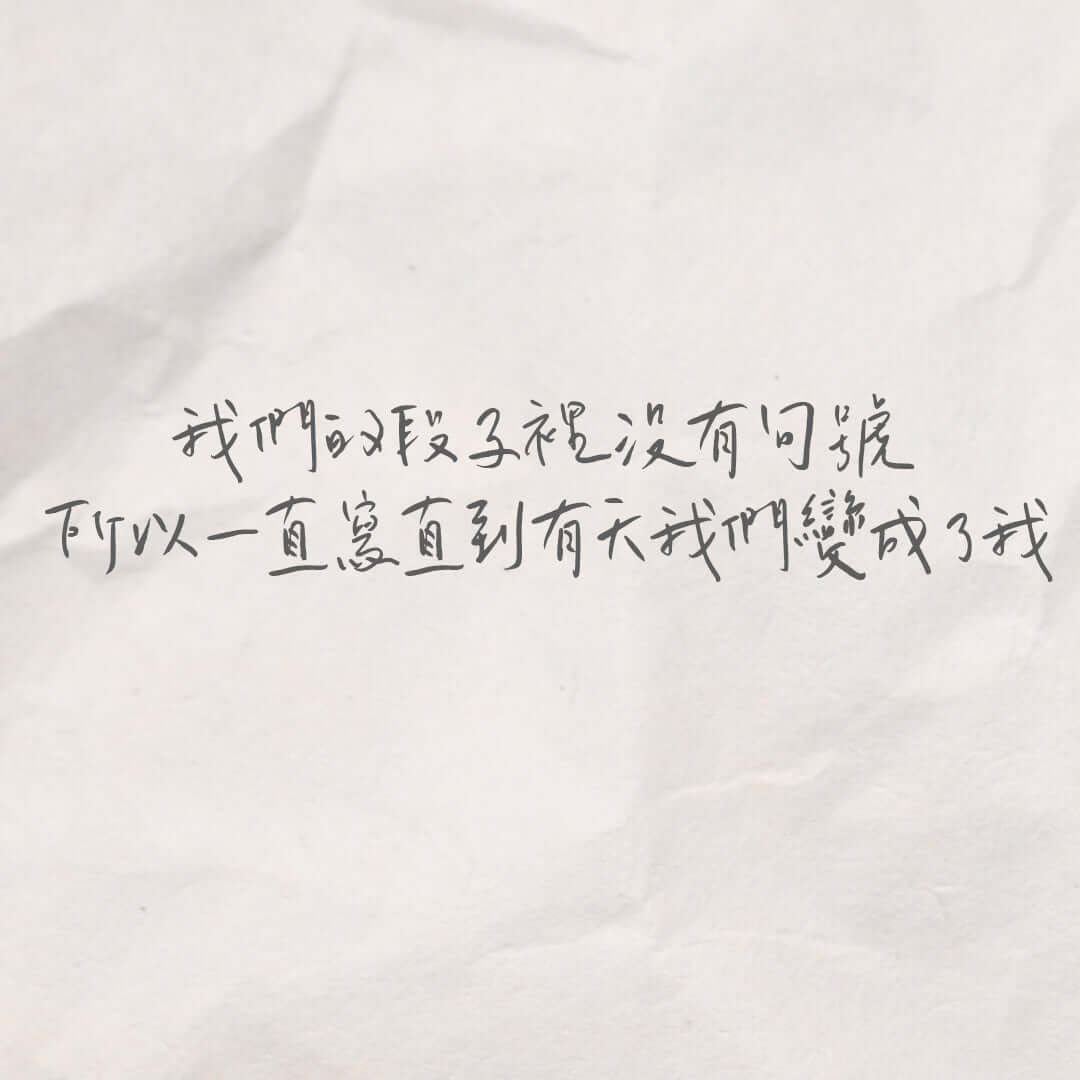 我們的段子裡沒有句號
所以一直寫直到有天我們變成了我